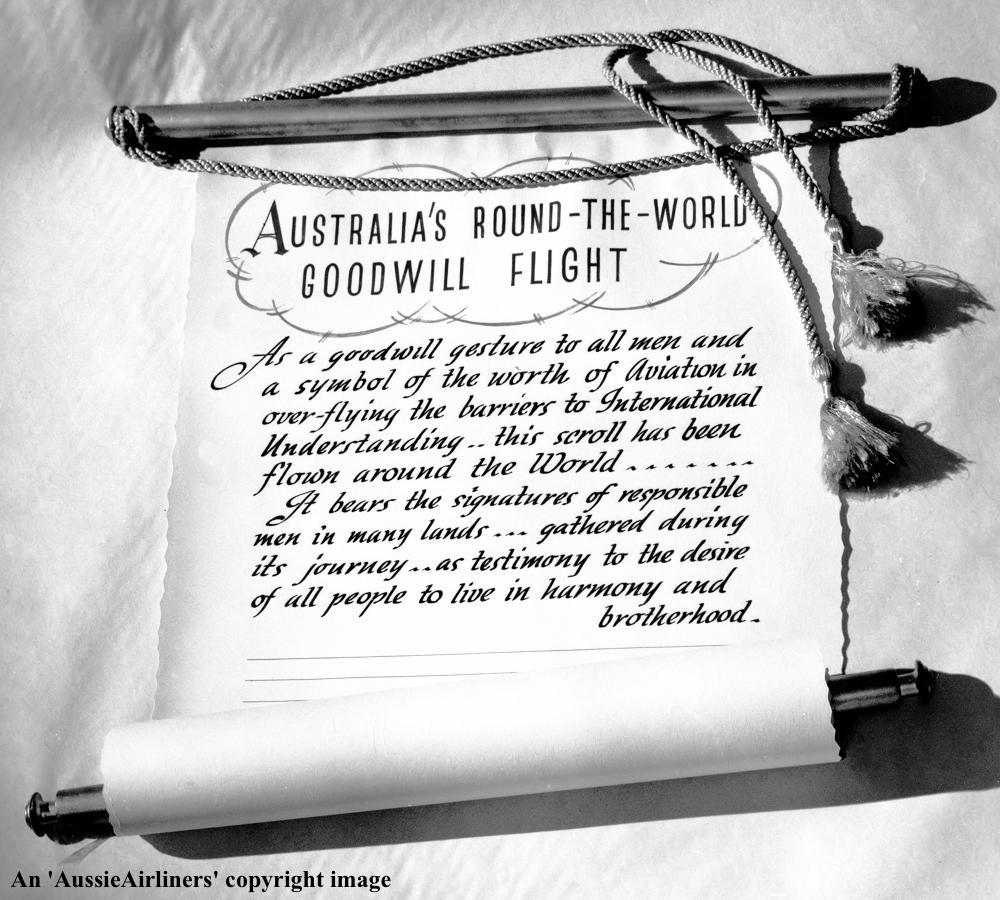 AUSTRALIA'S ROUND-THE-WORLD
GOODWILL FLIGHT
As a goodwill gesture to all men and
a symbol of the worth of Aviation in
over-flying the barriers to International
Understanding .. this scroll has been
flown around the World . . . . . . .
It bears the signatures of responsible
men in many lands ... gathered during
its journey .. as testimony to the desire
of all people to live in harmony and
brotherhood.
An 'AussieAirliners' copyright image